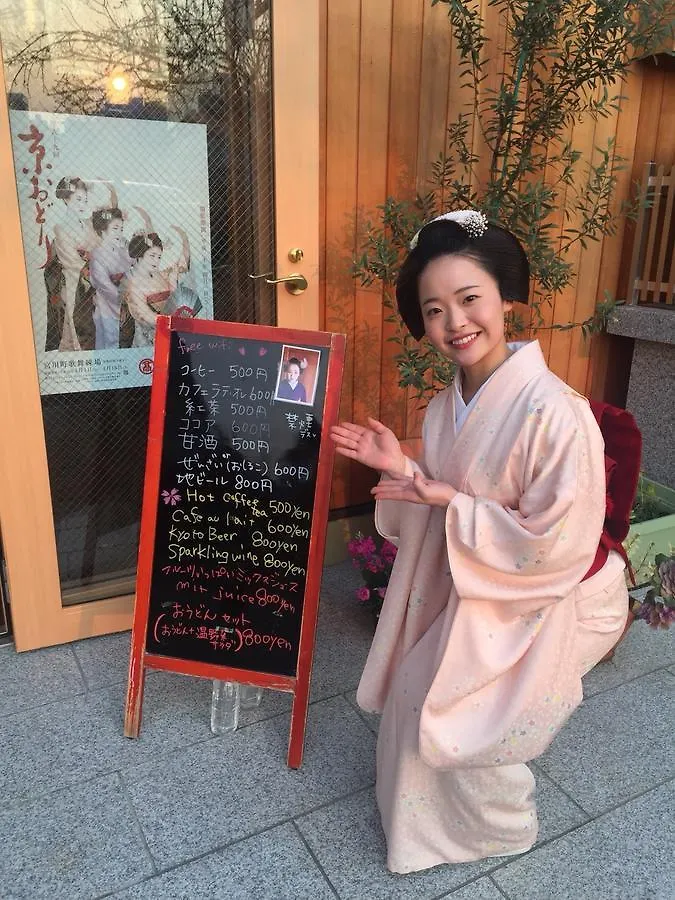 京おどり
宮川町歌舞練場
free wifi
コーヒー 500円
カフェラテ・オレ 600円
紅茶 500円
ココア 600円
甘酒 500円
ぜんざい(おしるこ) 600円
地ビール 800円
禁煙
デス
Hot coffee tea 500yen
Cafe au lait 600yen
Kyoto Beer 800yen
Sparkling wine 800yen
フルーツいっぱいミックスジュース
mix juice 800yen
おうどんセット
(おうどん+温野菜サラダ) 800yen